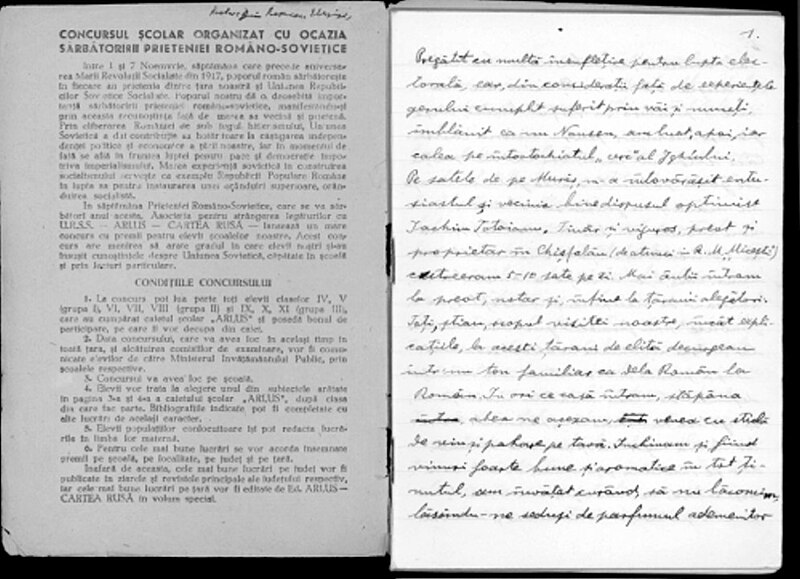 CONCURSUL ȘCOLAR ORGANIZAT CU OCAZIA
SĂRBĂTORIRII PRIETENIEI ROMÂNO-SOVIETICE
Intre 1 și 7 Noemvrie, săptămâna care precede aniversa-
rea Marii Revoluții Socialiste din 1917, poporul român sărbătorește
în fiecare an prietenia dintre țara noastră și Uniunea Republi-
cilor Sovietice Socialiste. Poporul nostru dă o deosebită impor-
tanță sărbătoririi prieteniei româno-sovietice, manifestându-și
prin aceasta recunoștința față de marea sa vecină și prietenă.
Prin eliberarea României de sub jugul hitlerismului, Uniunea
Sovietică a dat contribuția sa hotărîtoare la câștigarea indepen-
denței politice și economice a țării noastre, iar în momentul de
față se află în fruntea luptei pentru pace și democrație împo-
triva imperialismului. Marea experiență sovietică în construirea
socialismului servește ca exemplu Republicii Populare Române
în lupta sa pentru instaurarea unei orânduiri superioare, orân-
duirea socialistă.
In săptămâna Prieteniei Româno-Sovietice, care se va săr-
bători anul acesta, Asociația pentru strângerea legăturilor cu
U.R.S.S. — ARLUS — CARTEA RUSĂ — lansează un mare
concurs cu premii pentru elevii școalelor noastre. Acest con-
curs are menirea să arate gradul în care elevii noștri și-au
însușit cunoștințele despre Uniunea Sovietică, căpătate în școală
și prin lecturi particulare.
CONDIȚIILE CONCURSULUI
1. La concurs pot lua parte toți elevii claselor IV, V
(grupa I), VI, VII, VIII (grupa II) și IX, X, XI (grupa III),
care au cumpărat caietul școlar „ARLUS" și posedă bonul de
participare, pe care îl vor decupa din caiet.
2. Data concursului, care va avea loc în același timp în
toată țara, și alcătuirea comisiilor de examinare, vor fi comu-
nicate elevilor de către Ministerul Învățământului Public, prin
școalele respective.
3. Concursul va avea loc pe școală.
4. Elevii vor trata la alegere unul din subiectele arătate
în pagina 3-a și 4-a a caietului școlar „ARLUS", după clasa
din care fac parte. Bibliografiile indicate, pot fi completate cu
alte lucrări de același caracter.
5. Elevii populațiilor conlocuitoare își pot redacta lucră-
rile în limba lor maternă.
6. Pentru cele mai bune lucrări se vor acorda însemnate
premii pe școală, pe localitate, pe județ și pe țară.
Inafară de aceasta, cele mai bune lucrări pe județ vor fi
publicate în ziarele și revistele principale ale județului respectiv,
iar cele mai bune lucrări pe țară vor fi editate de Ed. ARLUS—
CARTEA RUSĂ în volum special.
1.
Pregătit cu multă însuflețire pentru lupta elec-
torală, iar, din considerații față de experiențele
gerului cumplit suferit prin văi și munți,
îmblănit ca un Nansen, am luat, apoi, iar
calea pe întortochiatul „cerc" al Ighiului.
Pe satele de pe Mureș, m-a întovărășit entu-
siastul și vecinic binedispusul optimist
Ioachim Totoianu. Tînăr și viguros, preot și
proprietar în Chisfalău (de atunci în R.M. Micești)
cutreeram 5-10 sate pe zi. Mai întîi intram
la preot, notar și, în fine la țăranii alegători.
Toți, știau, scopul visitei noastre, încât expli-
cațiile, la acești țărani de elită decurgeau
intr-un ton familiar ca dela Român la
Român. In ori ce casă intram, stăpâna
abea ne așezam, venea cu sticla
de vin și pahare pe tavă. Inchinam și fiind
vinuri foarte bune și aromatice în tot ți-
nutul, am învățat curând, să nu lăcomim,
lăsându-ne seduși de parfumul ademenitor